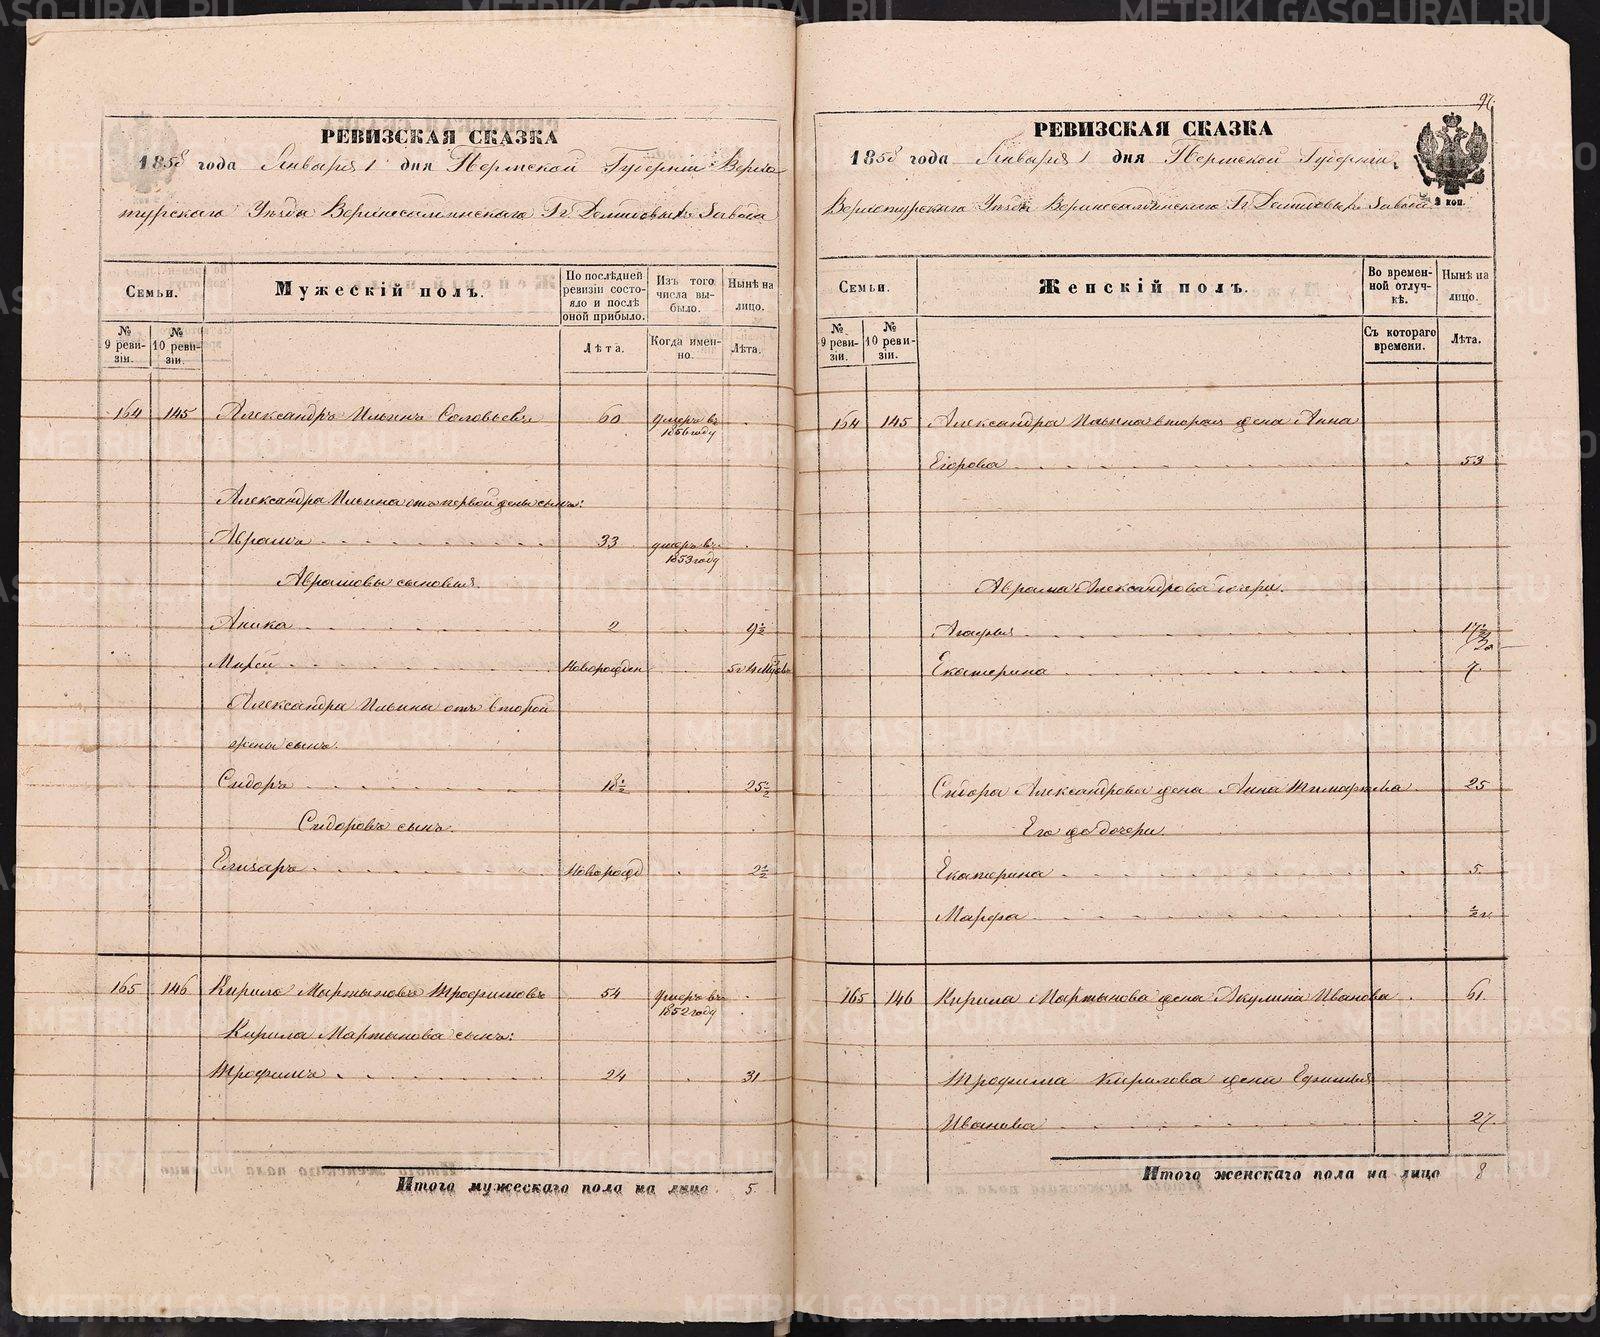 РЕВИЗСКАЯ СКАЗКА
1858 года Января 1 дня Пермской Губерніи Верхо-
турскаго Уѣзда Верхнесалдинскаго Гг. Демидовыхъ Завода
Семьи.
Мужескій полъ.
По послѣдней ревизіи состояло и послѣ оной прибыло.
Изъ того числа выбыло.
Нынѣ на лицо.
№ 9 ревизіи.
№ 10 ревизіи.
Лѣта.
Когда именно.
Лѣта.
164 145 Александръ Ильинъ Соловьевъ 60 умеръ въ 1856 году
Александра Ильина отъ первой жены сынъ:
Аврамъ 33 умеръ въ 1853 году
Аврамовы сыновья.
Аника 2 9½
Мирей Новорожден
Александра Ильина отъ второй
жены сынъ.
Сидоръ 18½ 25½
Сидоровъ сынъ.
Елизаръ Новорожд 2½
165 146 Кирило Мартыновъ Трофимовъ 54 умеръ въ 1852 году
Кирила Мартынова сынъ:
Трофимъ 24 31
Итого мужескаго пола на лицо 5.
97.
РЕВИЗСКАЯ СКАЗКА
1858 года Января 1 дня Пермской Губерніи,
Верхотурскаго Уѣзда Верхнесалдинскаго Гг Демидовыхъ Завода
2 коп.
Семьи.
Женскій полъ.
Во временной отлучкѣ.
Нынѣ на лицо.
№ 9 ревизіи.
№ 10 ревизіи.
Съ котораго времени.
Лѣта.
164 145 Александра Ильина вторая жена Анна
Егорова 53
Аврама Александрова дочери.
Агафья
Екатерина 7.
Сидора Александрова жена Анна 25
Его же дочери.
Екатерина 5.
Марфа ½ г.
165 146 Кирила Мартынова жена Акулина Иванова 61.
Трофима Кирилова жена Ефимья
Иванова 27.
Итого женскаго пола на лицо 8
METRIKI.GASO-URAL.RU